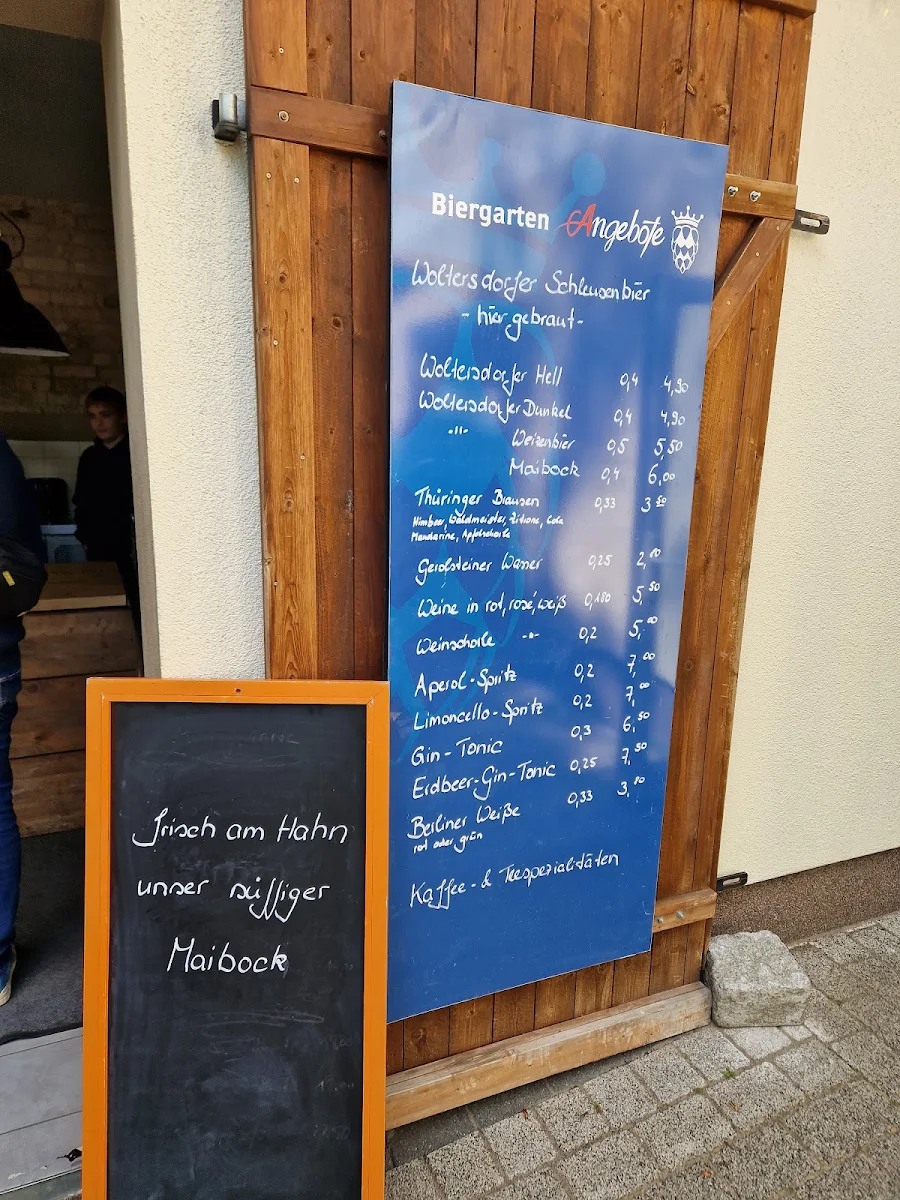 Biergarten Angebote
Woltersdorfer Schleusenbier
- hier gebraut -
Woltersdorfer Hell 0,4 4,90
Woltersdorfer Dunkel 0,4 4,90
-"- Weizenbier 0,5 5,50
Maibock 0,4 6,00
Thüringer Brausen 0,33 3 50
Himbeer, Waldmeister, Zitrone, Cola
Mandarine, Apfelschorle
Gerolsteiner Wasser 0,25
Weine in rot, rosé, weiß 0,180 5,50
Weinschorle -"- 0,2 5,00
Aperol-Spritz 0,2 7,00
Limoncello-Spritz 0,2 7,00
Gin-Tonic 0,3 6,50
Erdbeer-Gin-Tonic 0,25 7,50
Berliner Weiße 0,33
rot oder grün
Kaffee- & Teespezialitäten
frisch am Hahn
unser süffiger
Maibock